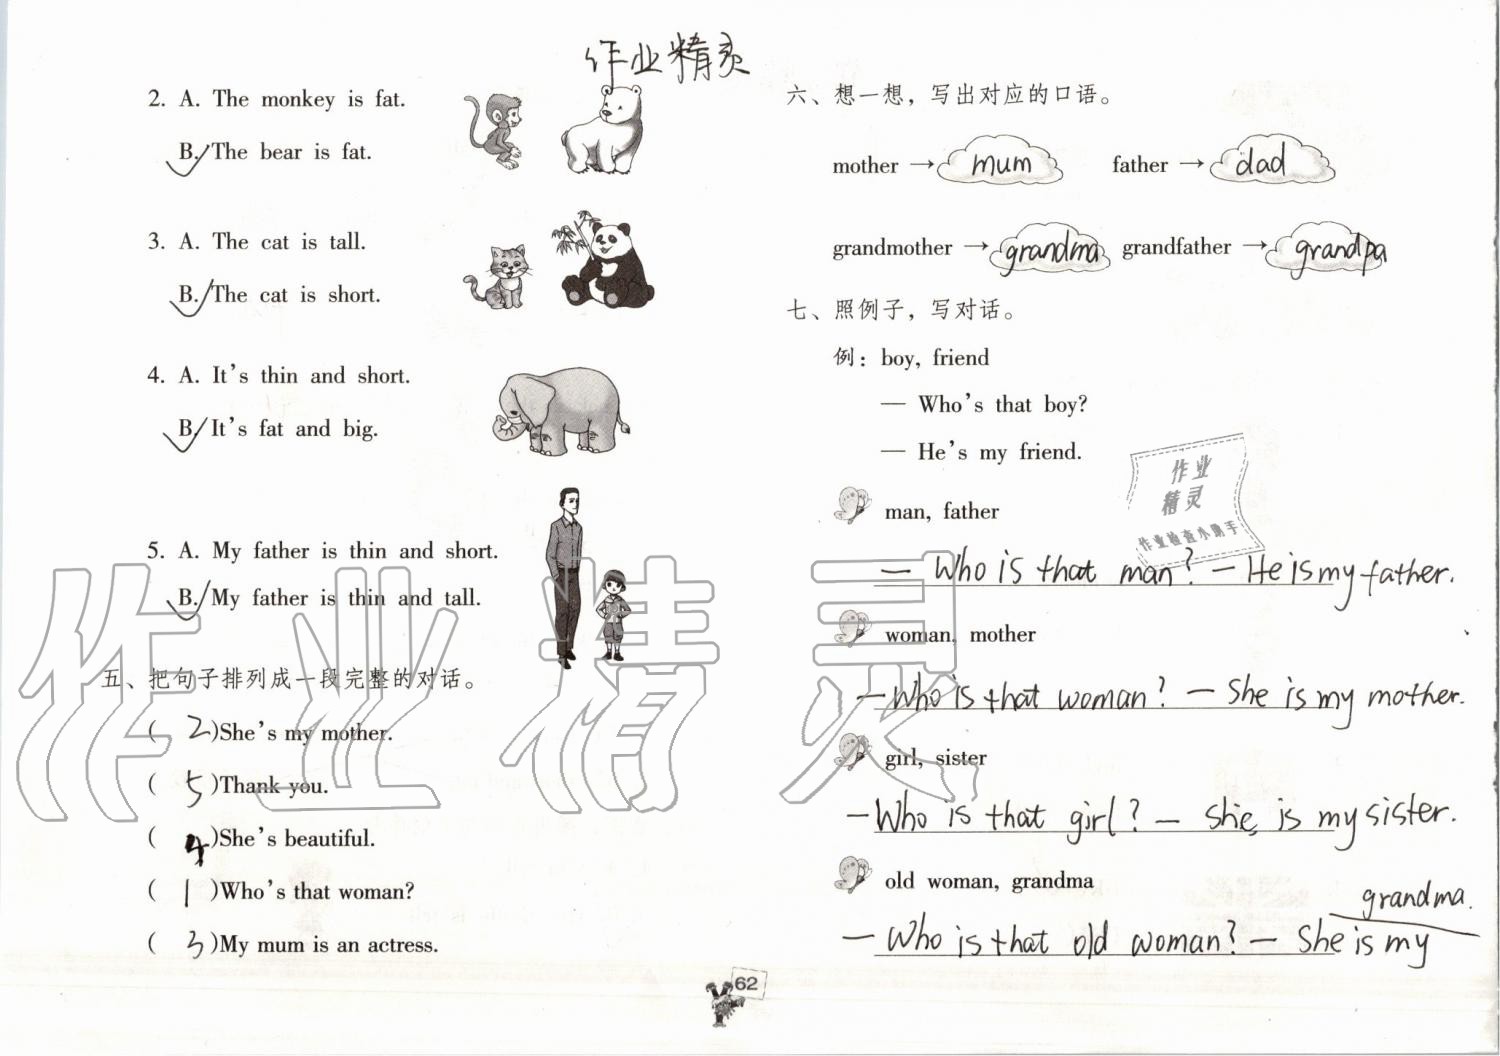 作业精灵
2. A. The monkey is fat.
B. The bear is fat.
3. A. The cat is tall.
B. The cat is short.
4. A. It's thin and short.
B. It's fat and big.
5. A. My father is thin and short.
B. My father is thin and tall.
五、把句子排列成一段完整的对话。
( 2 )She's my mother.
( 5 )Thank you.
( 4 )She's beautiful.
( 1 )Who's that woman?
( 3 )My mum is an actress.
六、想一想，写出对应的口语。
mother → mum father → dad
grandmother → grandma grandfather → grandpa
七、照例子，写对话。
例：boy, friend
— Who's that boy?
— He's my friend.
man, father
— Who is that man? — He is my father.
woman, mother
— Who is that woman? — She is my mother.
girl, sister
— Who is that girl? — She is my sister.
old woman, grandma
— Who is that old woman? — She is my grandma.
作业
精灵
作业检查小助手
作业精灵
62